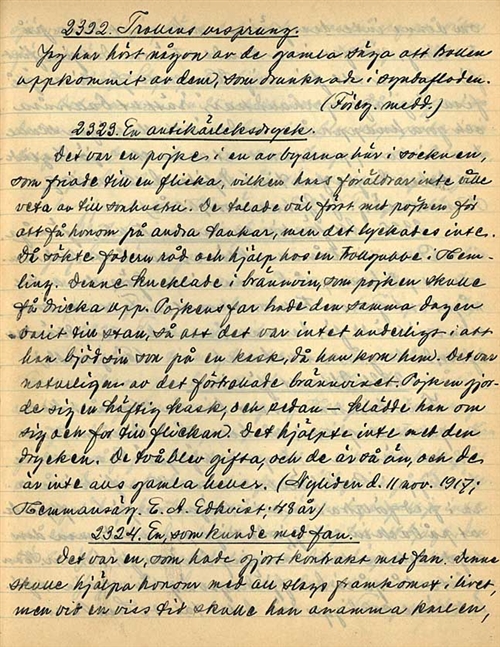 2322. Trollens ursprung.
Jag har hört någon av de gamla säga att trollen
uppkommit av dem, som drunknade i syndafloden.
(Föreg. medd.)
2323. En antikärleksdryck.
Det var en pojke i en av byarna här i socknen,
som friade till en flicka, vilken hans föräldrar inte ville
veta av till sonhustru. De talade väl först med pojken för
att få honom på andra tankar, men det lyckades inte.
Då sökte fadern råd och hjälp hos en trollgubbe i Hem-
ling. Denne kucklade i brännvin, som pojken skulle
få dricka upp. Pojkens far hade den samma dagen
varit till stan, så att det var intet underligt i att
han bjöd sin son på en kask, då han kom hem. Det var
naturligtvis av det förtrollade brännvinet. Pojken gjor-
de sig en häftig kask, och sedan — klädde han om
sig och for till flickan. Det hjälpte inte med den
drycken. De två blev gifta, och de är så än, och de
är inte alls gamla heller. (Nyliden d. 11 nov. 1917;
Hemmansäg. E. A. Edkvist, 48 år)
2324. En, som kunde med fan.
Det var en, som hade gjort kontrakt med fan. Denne
skulle hjälpa honom med all slags framkomst i livet,
men vid en viss tid skulle han anamma karlen,